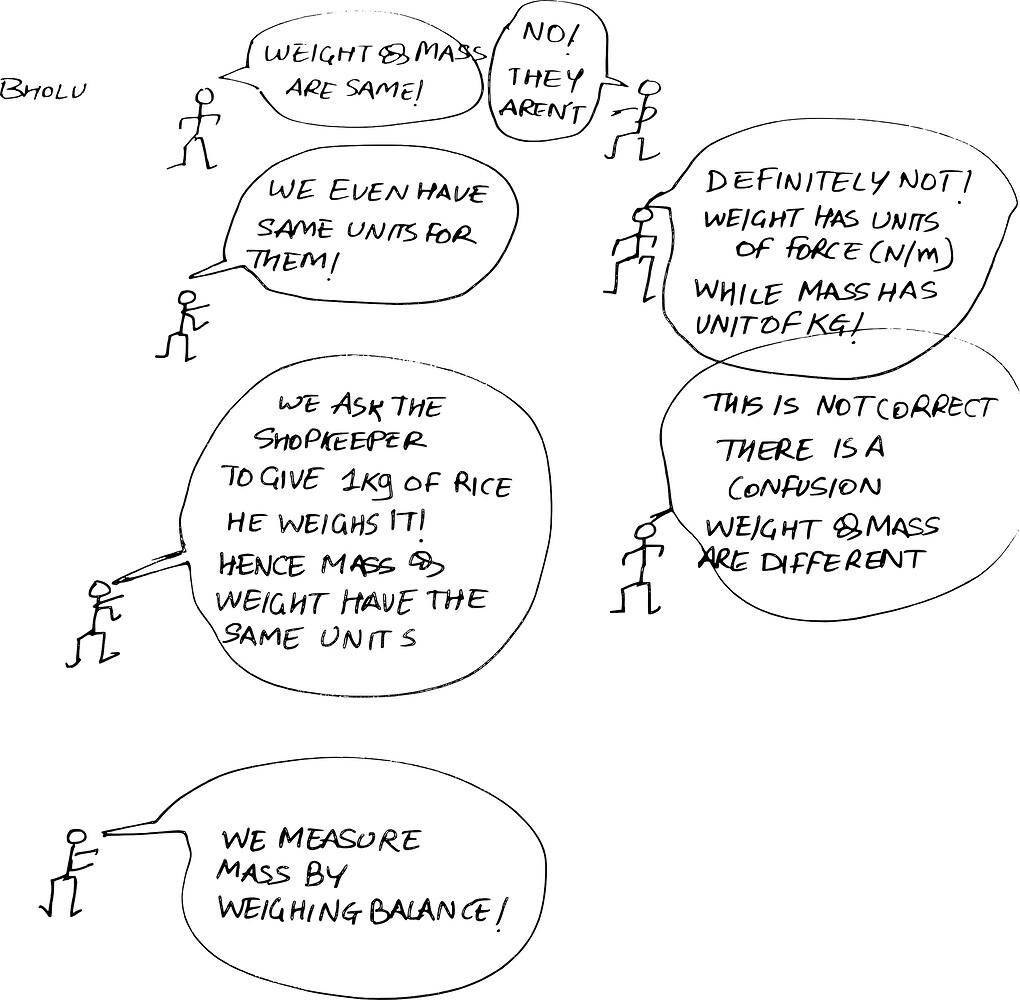 BHOLU
WEIGHT & MASS
ARE SAME!
NO!
THEY
AREN'T
WE EVEN HAVE
SAME UNITS FOR
THEM!
DEFINITELY NOT!
WEIGHT HAS UNITS
OF FORCE (N/m)
WHILE MASS HAS
UNIT OF KG!
WE ASK THE
SHOPKEEPER
TO GIVE 1Kg OF RICE
HE WEIGHS IT!
HENCE MASS &
WEIGHT HAVE THE
SAME UNITS
THIS IS NOT CORRECT
THERE IS A
CONFUSION
WEIGHT & MASS
ARE DIFFERENT
WE MEASURE
MASS BY
WEIGHING BALANCE!